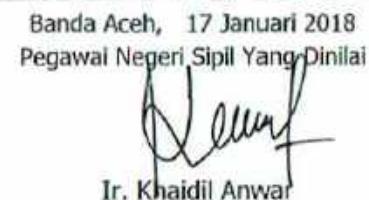 Banda Aceh, 17 Januari 2018
Pegawai Negeri Sipil Yang Dinilai
Ir. Khaidil Anwar